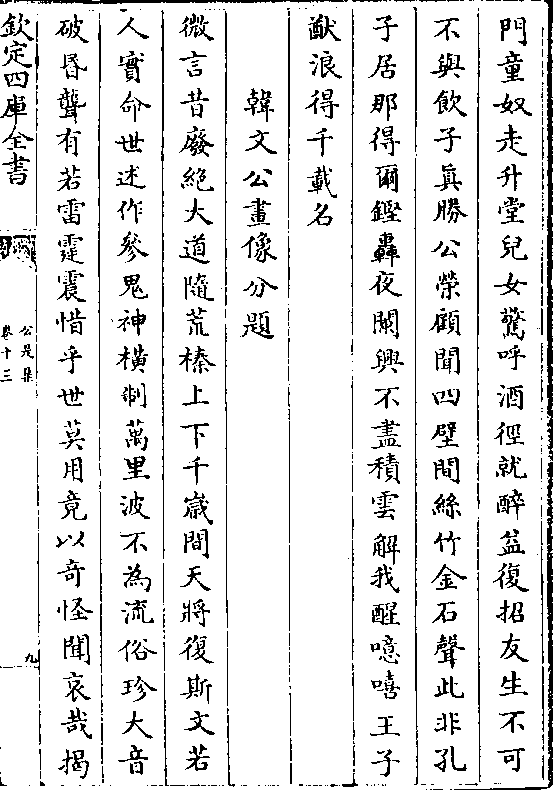 門童奴走升堂兒女驚呼酒徑就醉益復招友生不可
不與飲子真勝公榮顧聞四壁間絲竹金石聲此非孔
子居那得爾鏗轟夜闌興不盡積雲解我酲噫嘻王子
猷浪得千載名
韓文公畫像分題
微言昔廢絕大道隨荒榛上下千歲間天將復斯文若
人實命世述作參鬼神橫制萬里波不為流俗珍大音
破昏聾有若雷霆震惜乎世莫用竟以奇怪聞哀哉揭
欽定四庫全書
公是集
卷十三
九